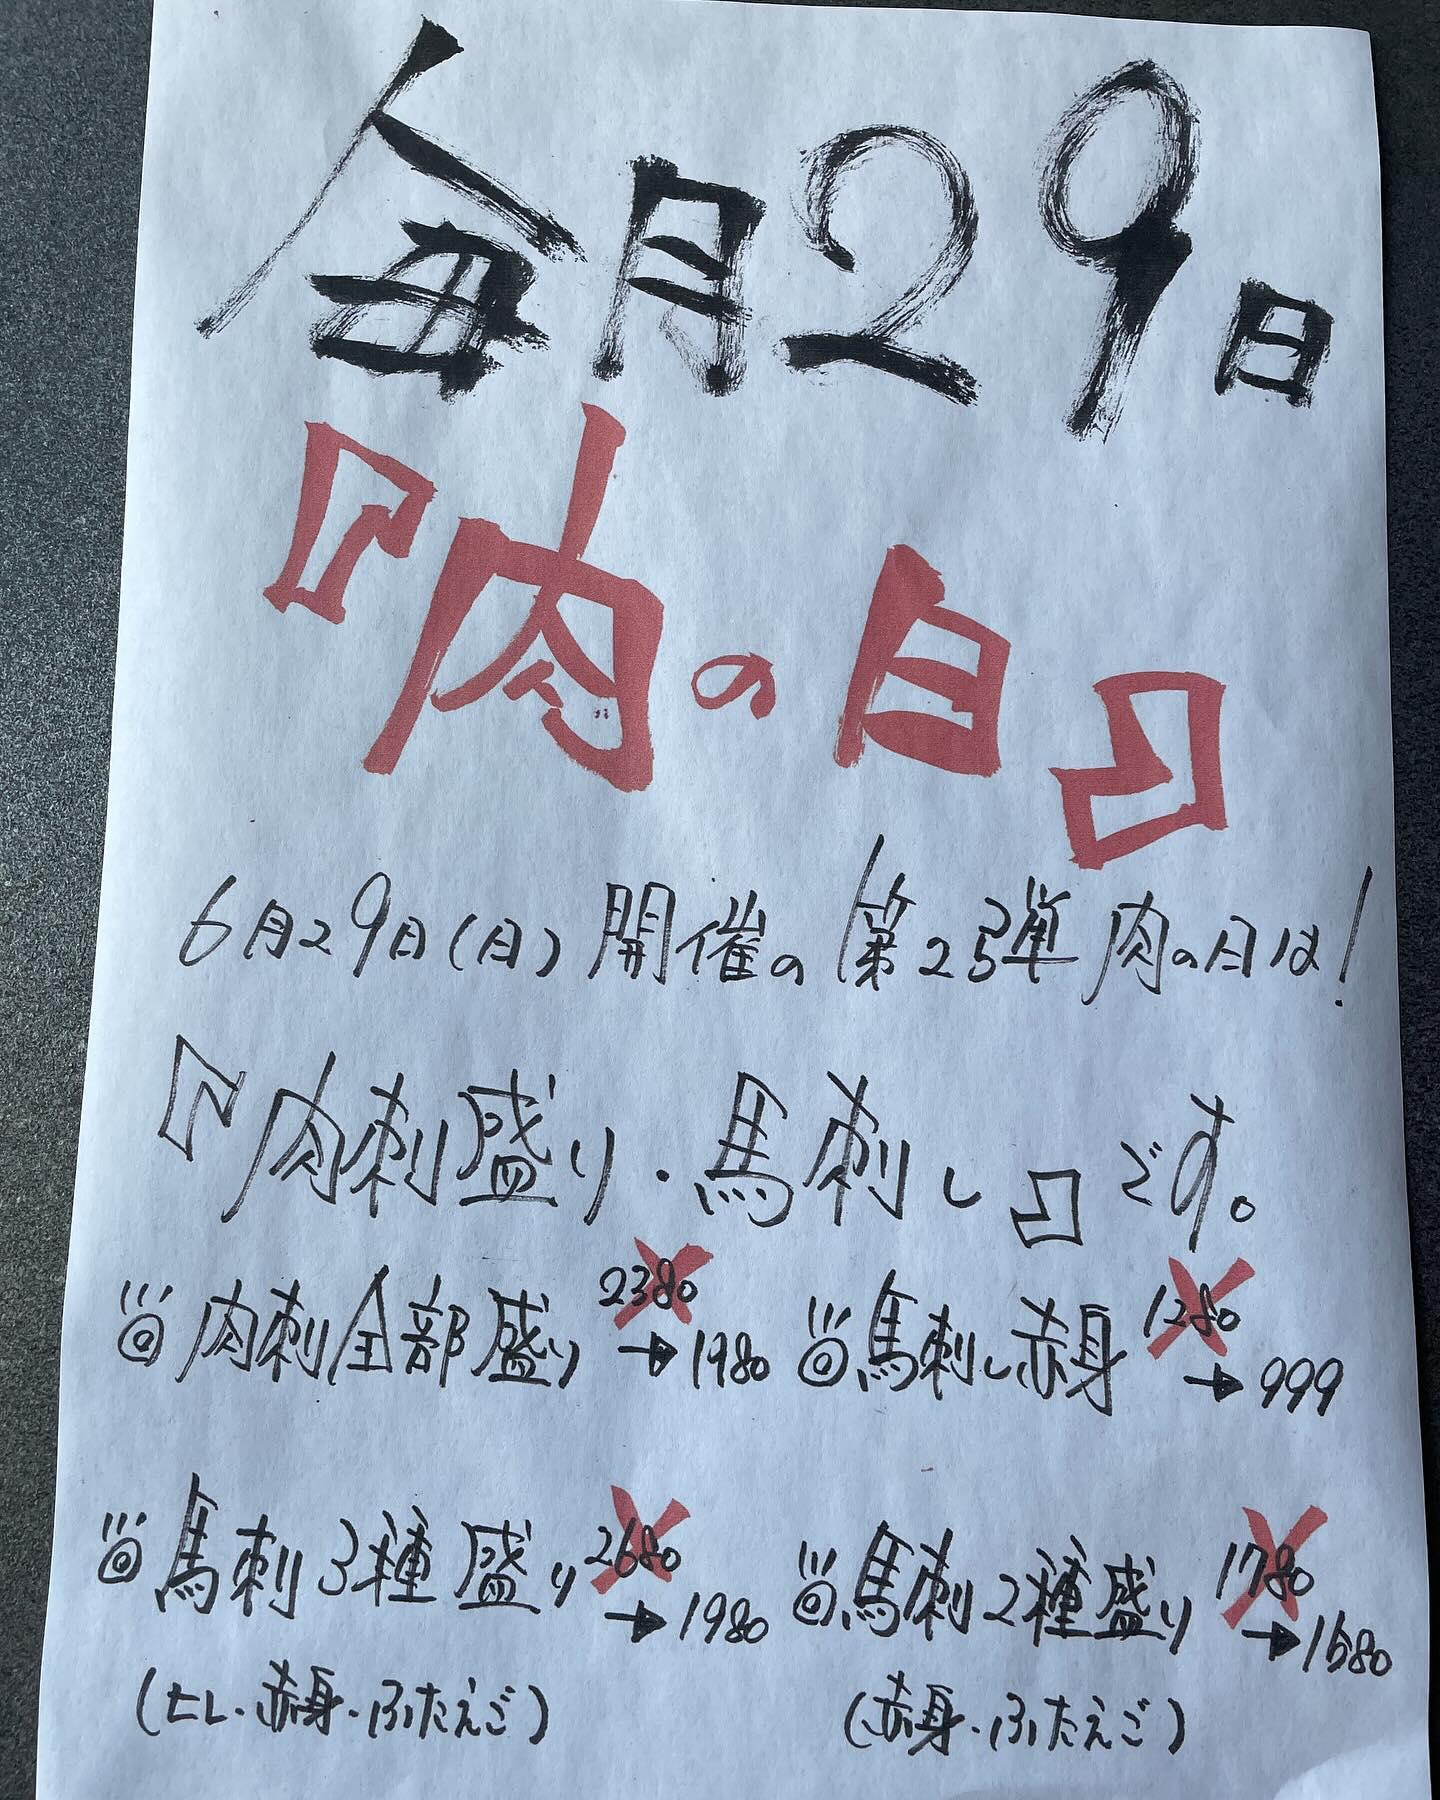 毎月29日
『肉の日』
6月29日(日)開催の第25弾肉の日は!
『肉刺盛り・馬刺し』です。
◎肉刺全部盛り 2380→1980
◎馬刺し赤身 1280→999
◎馬刺3種盛り 2680→1980
(ヒレ・赤身・ふたえご)
◎馬刺2種盛り 1780→1580
(赤身・ふたえご)